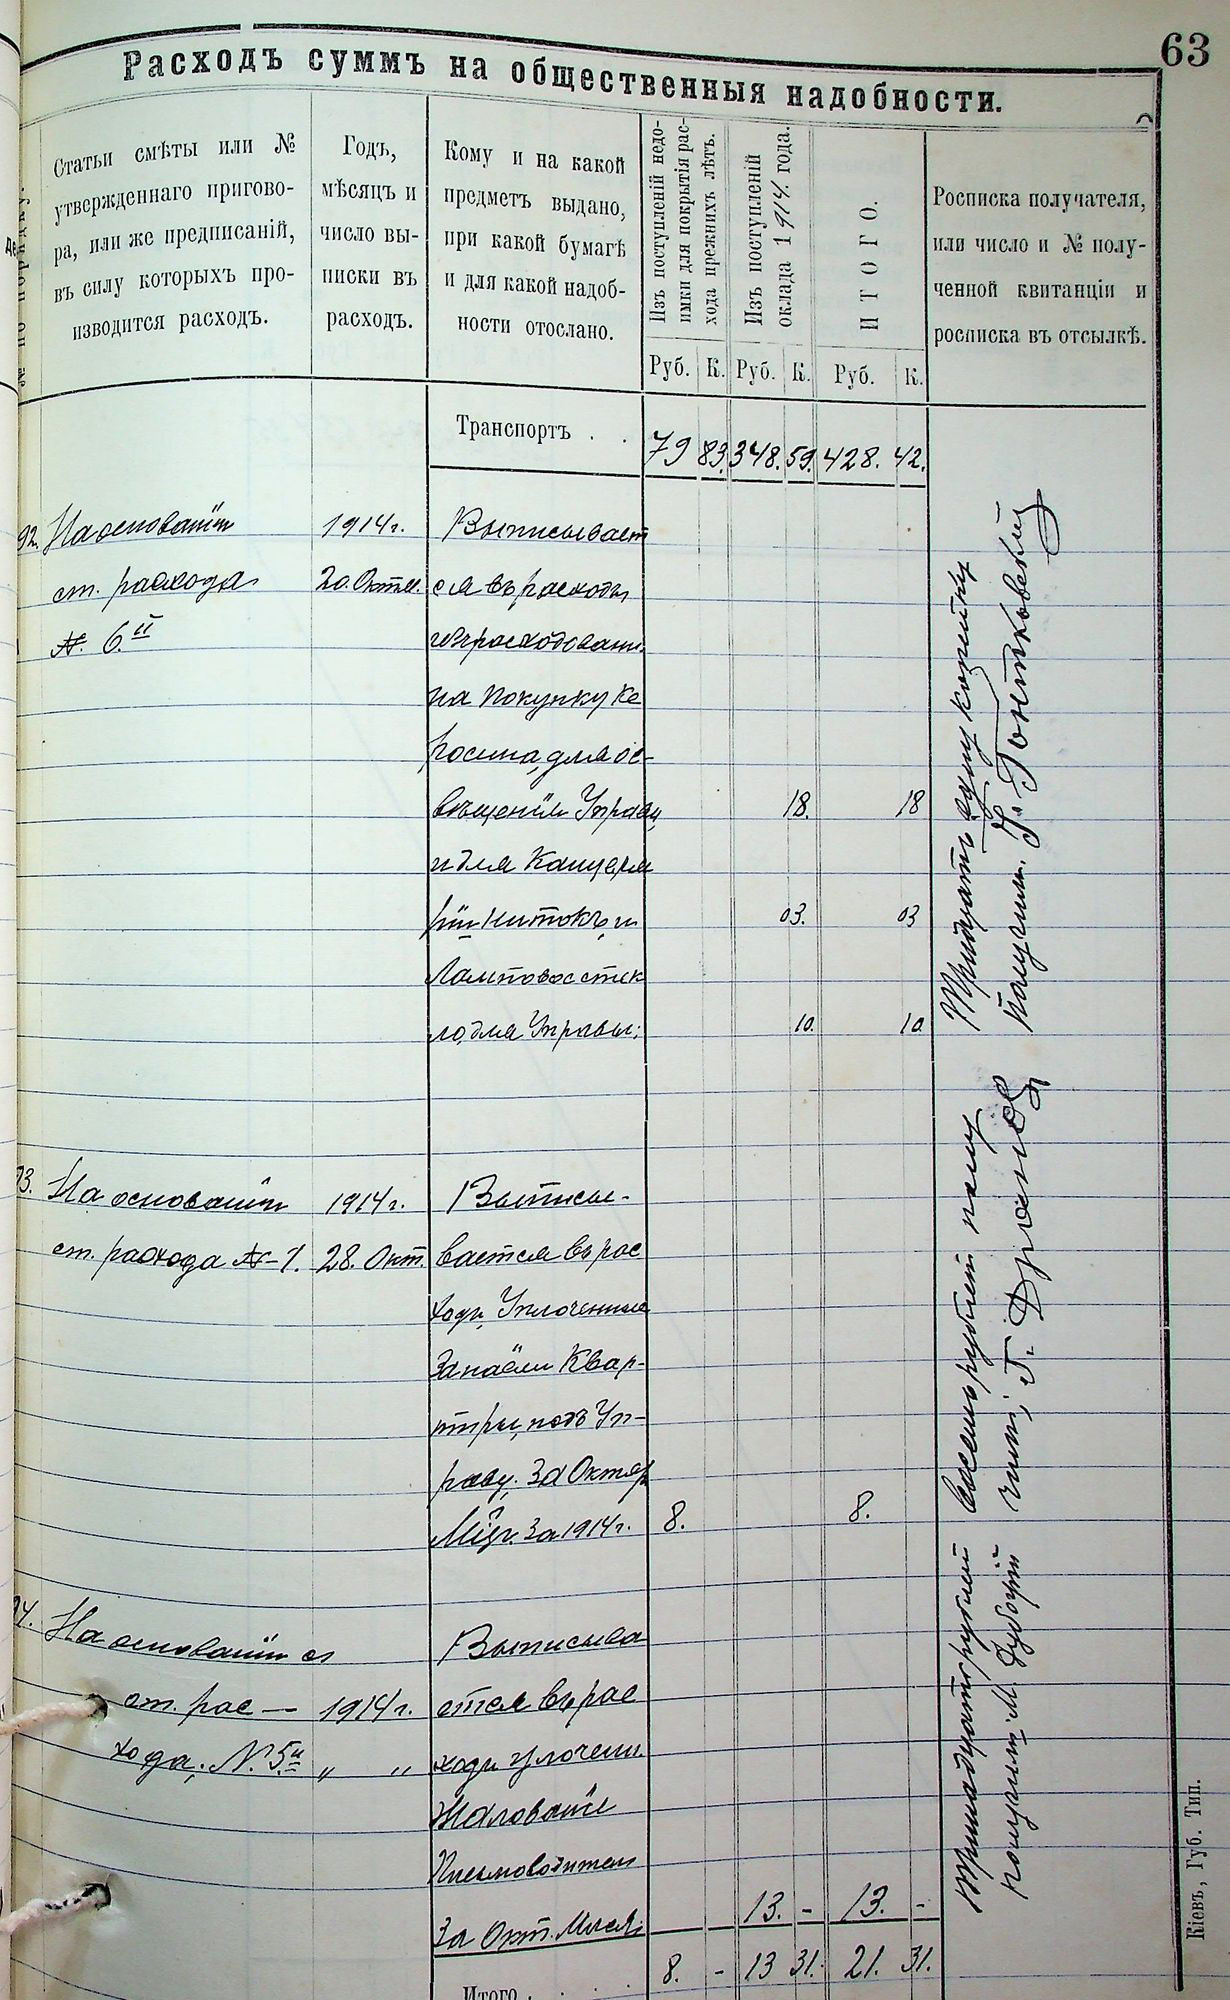 63
Расходъ суммъ на общественныя надобности.
Статьи смѣты или №
утвержденнаго пригово-
ра, или же предписаній,
въ силу которыхъ про-
изводится расходъ.
Годъ,
мѣсяцъ и
число вы-
писки въ
расходъ.
Кому и на какой
предметъ выдано,
при какой бумагѣ
и для какой надоб-
ности отослано.
Изъ поступленій недо-
имки для покрытія рас-
хода прежнихъ лѣтъ.
Изъ поступленій
оклада 1914 года.
ИТОГО.
Росписка получателя,
или число и № полу-
ченной квитанціи и
росписка въ отсылкѣ.
Руб. К. Руб. К. Руб. К.
Транспортъ . . 79 83. 348. 59. 428. 42.
92. На основаніи 1914 г. Выписывает
ст. расхода 20. Окт. ся въ расходъ
№ 6.й
на покупку ке
росина, для ос-
вѣщенія Управы, 18. 18
и для Канцеля
ріи нитокъ, и 03. 03
Ламповое стек
ло, для Управы; 10. 10
Тридцать одну копейку
получилъ.
93. На основаніи 1914 г. Выписы-
ст. расхода №-1. 28. Окт. вается въ рас
ходъ, Уплоченные
За наемъ Квар-
тиры, подъ Уп-
раву. За Октяб
Мцъ. За 1914 г. 8. 8.
Восемь рублей полу
чилъ,
94. На основаніи
ст. рас — 1914 г. Выписыва
ется въ рас
хода, № 5й „ „ ходъ уплочен.
Жалованіе
Письмоводителю
За Окт. Мцъ. 13. - 13. -
Тринадцать рублей
получилъ М.
Итого . 8. - 13 31. 21. 31.
Кіевъ, Губ. Тип.